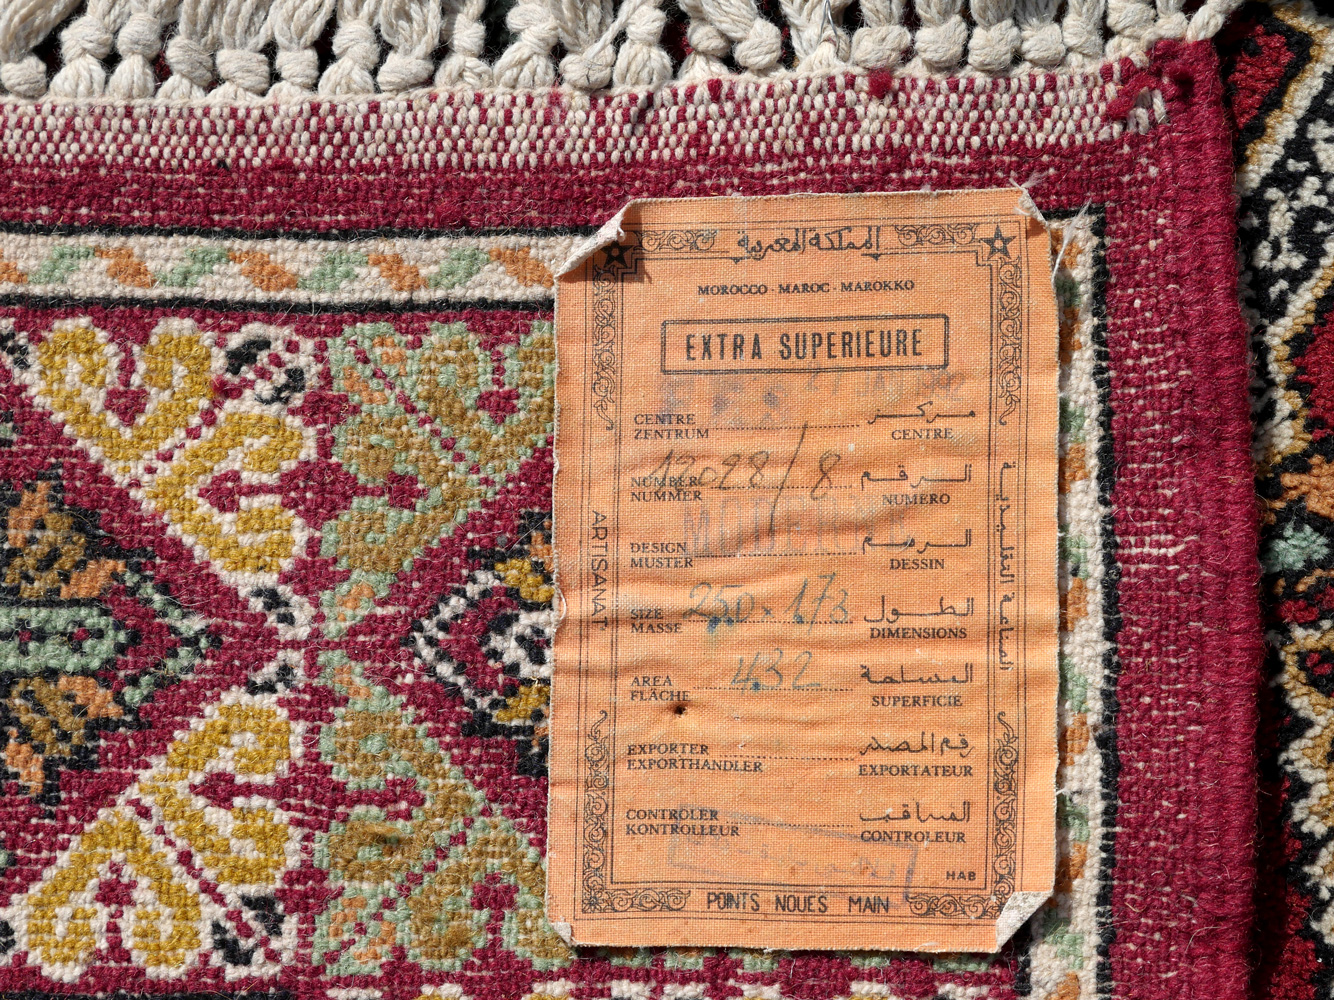 المملكة المغربية
MOROCCO - MAROC - MAROKKO
EXTRA SUPERIEURE
CENTRE مركز
ZENTRUM CENTRE
NUMBER 12028/8 الرقم
NUMMER NUMERO
DESIGN الرسم
MUSTER DESSIN
SIZE 250 x 173 الطول
MASSE DIMENSIONS
AREA 432 المساحة
FLÄCHE SUPERFICIE
EXPORTER رقم المصدر
EXPORTHANDLER EXPORTATEUR
CONTRÔLER المراقب
KONTROLLEUR CONTROLEUR
HAB
POINTS NOUES MAIN
ARTISANAT
الصناعة التقليدية